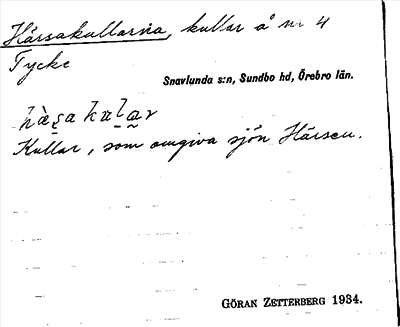 Hårsakullarna, kullar å nr 4
Tycke
Snavlunda s:n, Sundbo hd, Örebro län.
Kullar, som omgiva sjön Hårsen.
GÖRAN ZETTERBERG 1934.